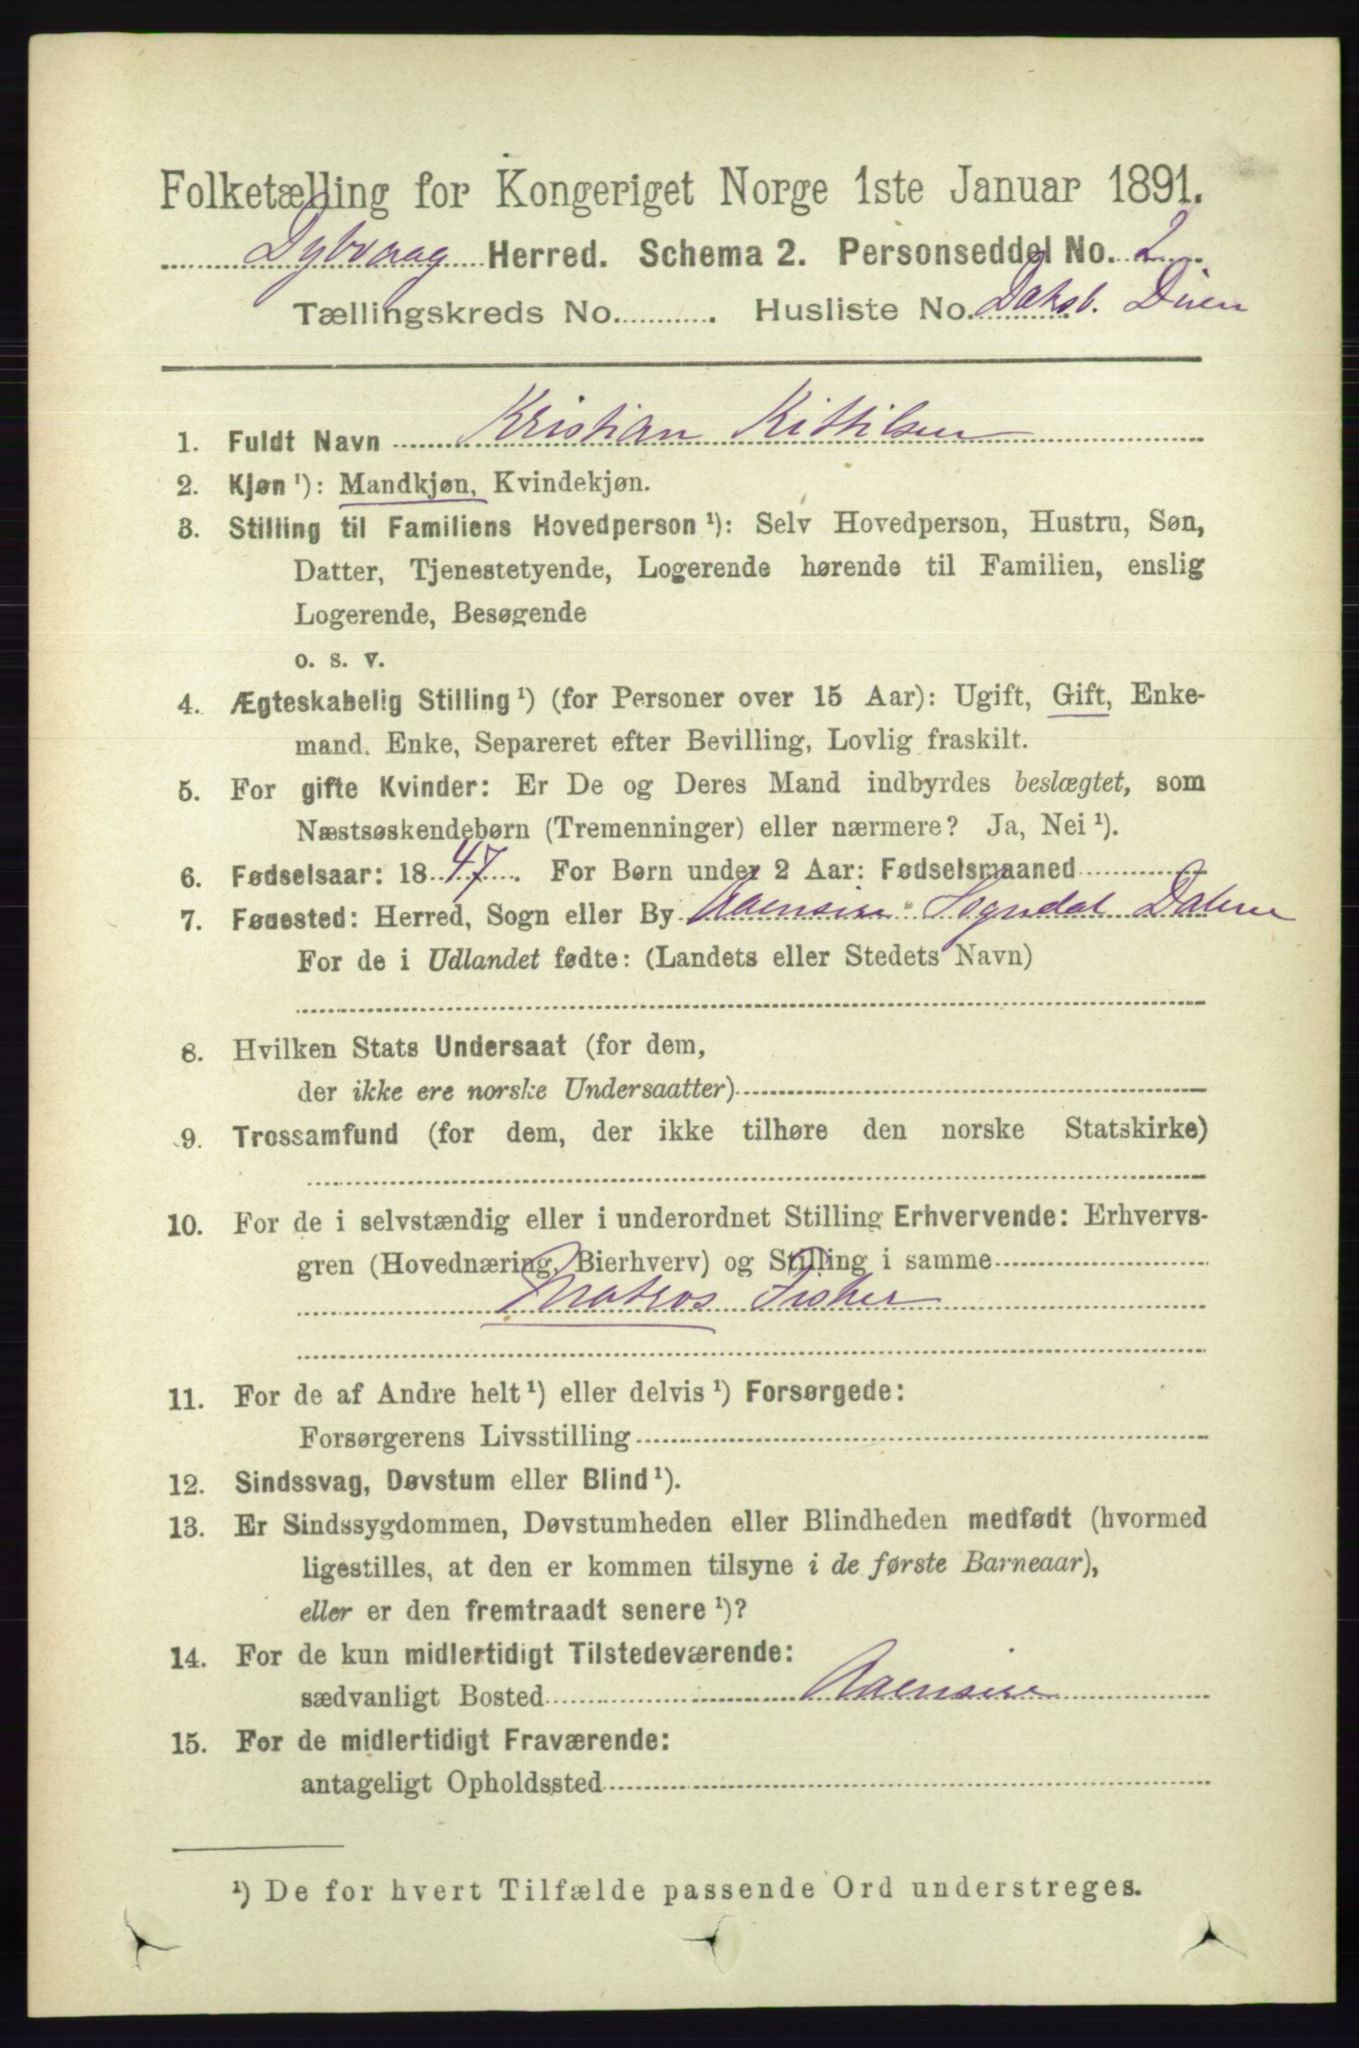 Folketælling for Kongeriget Norge 1ste Januar 1891.
Dybvaag Herred. Schema 2. Personseddel No. 2
Tællingskreds No. Husliste No. Daksb. Duen
1. Fuldt Navn Kristian Kittilsen
2. Kjøn ¹): Mandkjøn, Kvindekjøn.
3. Stilling til Familiens Hovedperson ¹): Selv Hovedperson, Hustru, Søn,
Datter, Tjenestetyende, Logerende hørende til Familien, enslig
Logerende, Besøgende
o. s. v.
4. Ægteskabelig Stilling ¹) (for Personer over 15 Aar): Ugift, Gift, Enke-
mand. Enke, Separeret efter Bevilling, Lovlig fraskilt.
5. For gifte Kvinder: Er De og Deres Mand indbyrdes beslægtet, som
Næstsøskendebørn (Tremenninger) eller nærmere? Ja, Nei ¹).
6. Fødselsaar: 1847. For Børn under 2 Aar: Fødselsmaaned
7. Fødested: Herred, Sogn eller By Aaensire Sogndal Dalene
For de i Udlandet fødte: (Landets eller Stedets Navn)
8. Hvilken Stats Undersaat (for dem,
der ikke ere norske Undersaatter)
9. Trossamfund (for dem, der ikke tilhøre den norske Statskirke)
10. For de i selvstændig eller i underordnet Stilling Erhvervende: Erhvervs-
gren (Hovednæring, Bierhverv) og Stilling i samme
Matros Fisker
11. For de af Andre helt ¹) eller delvis ¹) Forsørgede:
Forsørgerens Livsstilling
12. Sindssvag, Døvstum eller Blind ¹).
13. Er Sindssygdommen, Døvstumheden eller Blindheden medfødt (hvormed
ligestilles, at den er kommen tilsyne i de første Barneaar),
eller er den fremtraadt senere ¹)?
14. For de kun midlertidigt Tilstedeværende:
sædvanligt Bosted Aaensire
15. For de midlertidigt Fraværende:
antageligt Opholdssted
¹) De for hvert Tilfælde passende Ord understreges.